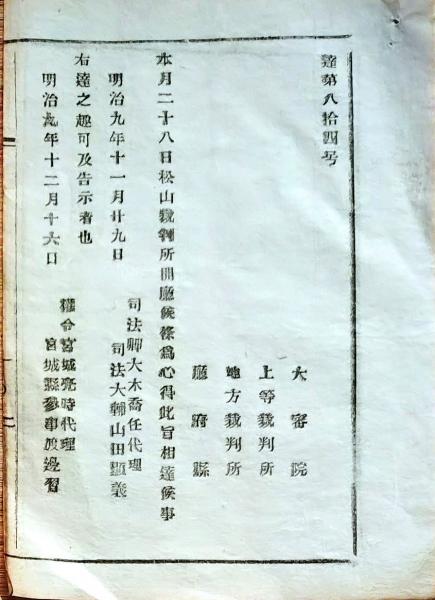 達第八拾四号
大審院
上等裁判所
地方裁判所
廳府縣
本月二十八日松山裁判所開廳候條為心得此旨相達候事
明治九年十一月廿九日
司法卿大木喬任代理
司法大輔山田顯義
右達之趣可及告示者也
明治九年十二月十六日
權令宮城亮時代理
宮城縣參事渡邊習